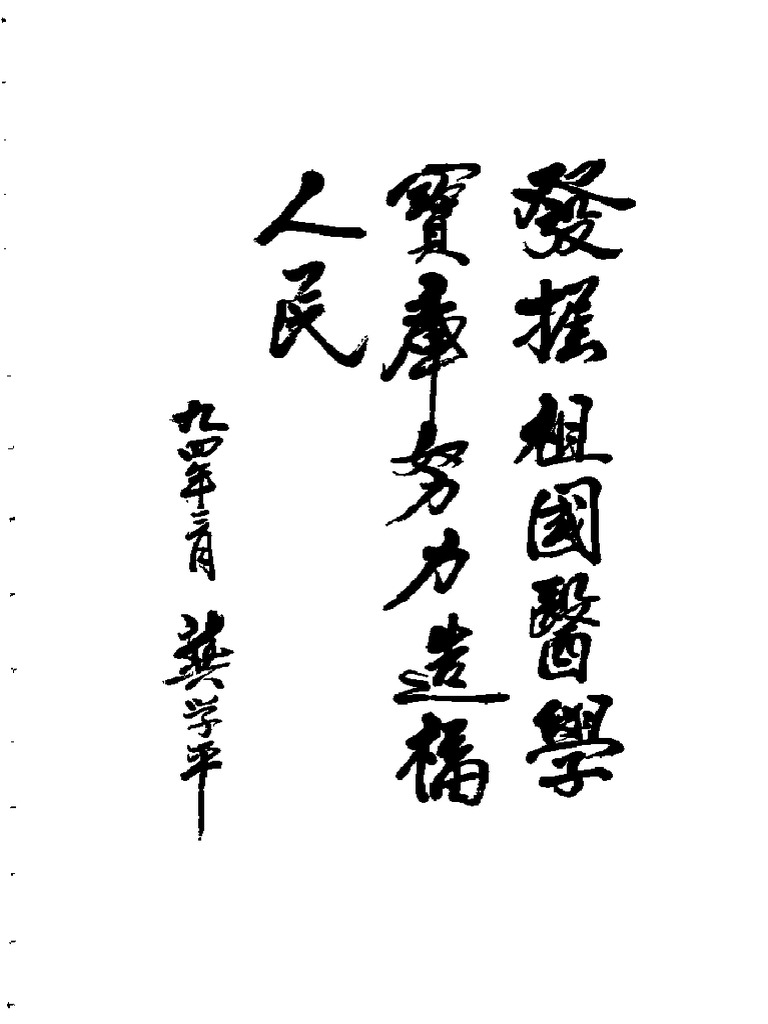 發掘祖國醫學
寶庫努力造福
人民
九四年三月 龔学平